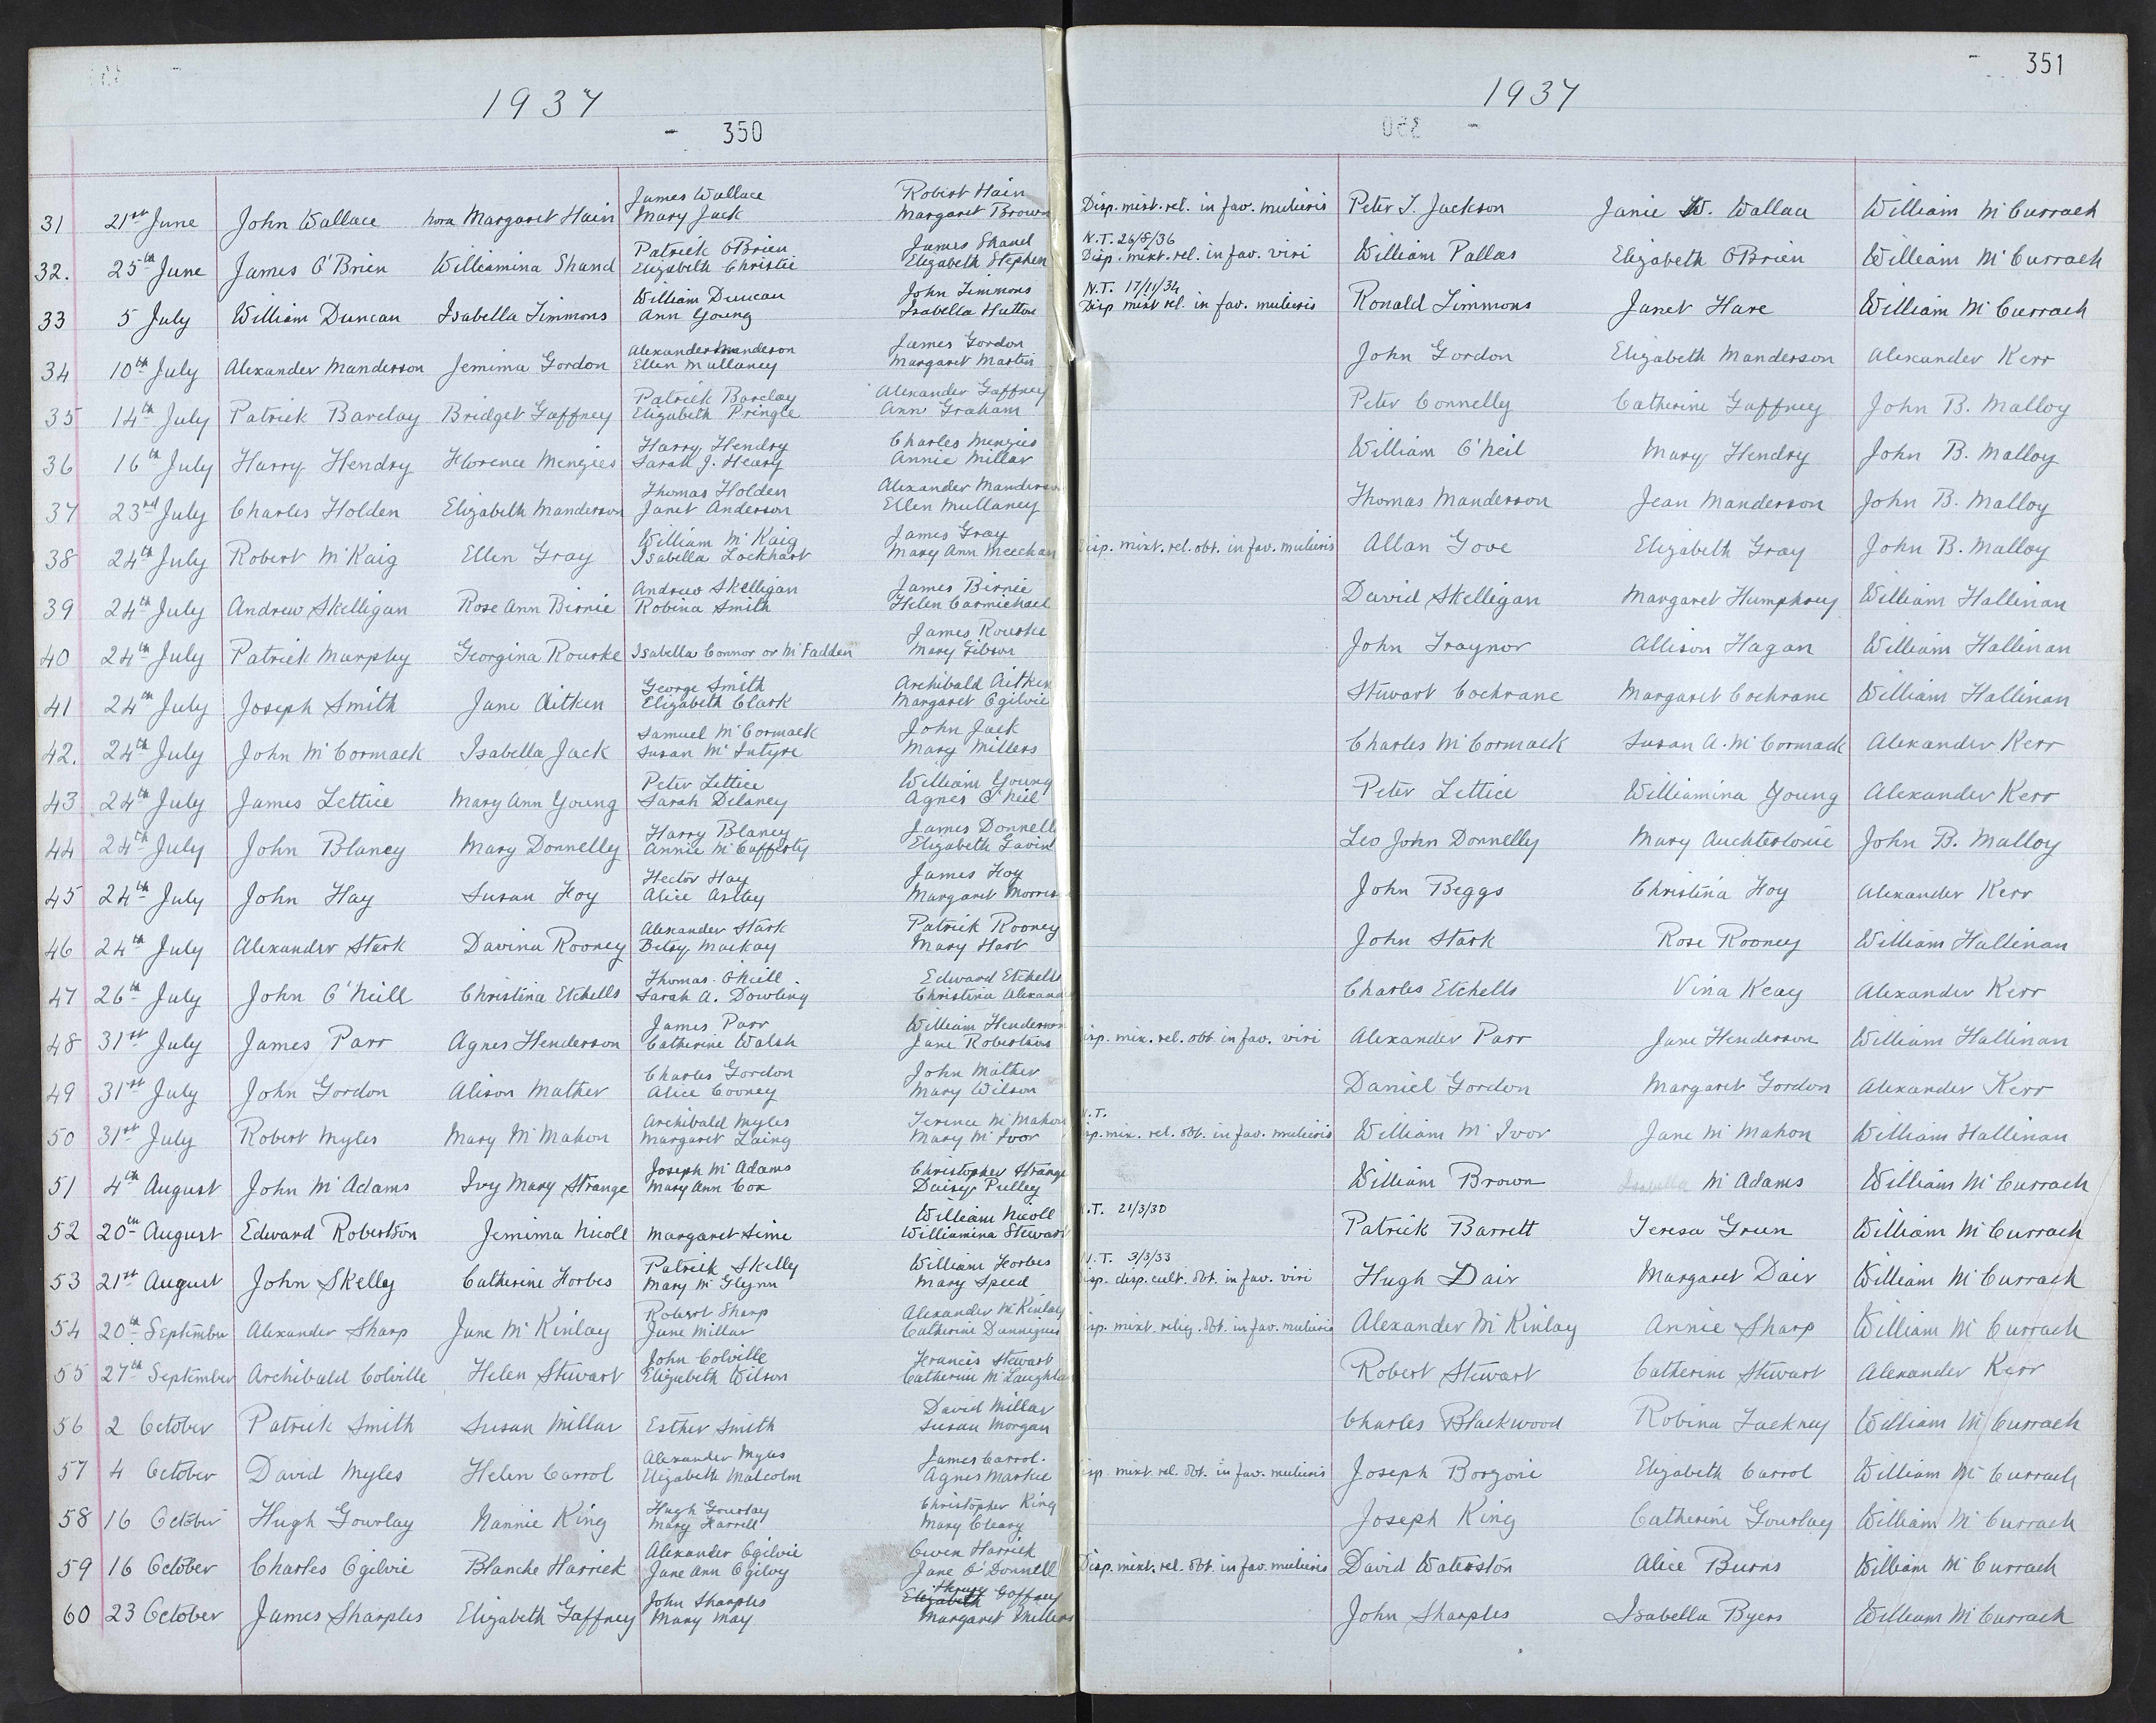 1937
350
1937
351
James Wallace Robert Hain
31 21st June John Wallace Nora Margaret Hain Mary Jack Margaret Brown Disp. mixt. rel. in fav. mulieris Peter J. Jackson Janie W. Wallace William McCurrach
Patrick O'Brien James Shand N.T. 26/8/36
32. 25th June James O'Brien Williamina Shand Elizabeth Christie Elizabeth Stephen Disp. mixt. rel. in fav. viri William Pallas Elizabeth O'Brien William McCurrach
William Duncan John Timmons N.T. 17/11/34
33 5 July William Duncan Isabella Timmons Ann Young Isabella Hutton Disp mixt rel. in fav. mulieris Ronald Timmons Janet Hare William McCurrach
Alexander Manderson James Gordon
34 10th July Alexander Manderson Jemima Gordon Ellen Mullaney Margaret Martin John Gordon Elizabeth Manderson Alexander Kerr
Patrick Barclay Alexander Gaffney
35 14th July Patrick Barclay Bridget Gaffney Elizabeth Pringle Ann Graham Peter Connelly Catherine Gaffney John B. Malloy
Harry Hendry Charles Menzies
36 16th July Harry Hendry Florence Menzies Sarah J. Heary Annie Millar William O'Neil Mary Hendry John B. Malloy
Thomas Holden Alexander Manderson
37 23rd July Charles Holden Elizabeth Manderson Janet Anderson Ellen Mullaney Thomas Manderson Jean Manderson John B. Malloy
William McKaig James Gray
38 24th July Robert McKaig Ellen Gray Isabella Lockhart Mary Ann Meechan Disp. mixt. rel. obt. in fav. mulieris Allan Gove Elizabeth Gray John B. Malloy
Andrew Skelligan James Birnie
39 24th July Andrew Skelligan Rose Ann Birnie Robina Smith Helen Carmichael David Skelligan Margaret Humphrey William Hallinan
James Rourke
40 24th July Patrick Murphy Georgina Rourke Isabella Connor or McFadden Mary Gibson John Traynor Allison Hagan William Hallinan
George Smith Archibald Aitken
41 24th July Joseph Smith Jane Aitken Elizabeth Clark Margaret Ogilvie Stewart Cochrane Margaret Cochrane William Hallinan
Samuel McCormack John Jack
42. 24th July John McCormack Isabella Jack Susan McIntyre Mary Millers Charles McCormack Susan A. McCormack Alexander Kerr
Peter Lettice William Young
43 24th July James Lettice Mary Ann Young Sarah Delaney Agnes O'Neil Peter Lettice Williamina Young Alexander Kerr
Harry Blaney James Donnelly
44 24th July John Blaney Mary Donnelly Annie McCafferty Elizabeth Gavin Leo John Donnelly Mary Auchterlonie John B. Malloy
Hector Hay James Hoy
45 24th July John Hay Susan Hoy Alice Astley Margaret Morris John Beggs Christina Hoy Alexander Kerr
Alexander Stark Patrick Rooney
46 24th July Alexander Stark Davina Rooney Betsy Mackay Mary Hart John Stark Rose Rooney William Hallinan
Thomas O'Neill Edward Etchells
47 26th July John O'Neill Christina Etchells Sarah A. Dowling Christina Alexand Charles Etchells Vina Keay Alexander Kerr
James Parr William Henderson
48 31st July James Parr Agnes Henderson Catherine Walsh Jane Robertson Disp. mix. rel. obt. in fav. viri Alexander Parr Jane Henderson William Hallinan
Charles Gordon John Mather
49 31st July John Gordon Alison Mather Alice Cooney Mary Wilson Daniel Gordon Margaret Gordon Alexander Kerr
Archibald Myles Terence McMahon N.T.
50 31st July Robert Myles Mary McMahon Margaret Laing Mary McIvor Disp. mix. rel. obt. in fav. mulieris William McIvor Jane McMahon William Hallinan
Joseph McAdams Christopher Strange
51 4th August John McAdams Ivy Mary Strange Mary Ann Cox Daisy Pulley William Brown Isabella McAdams William McCurrach
William Nicoll N.T. 21/3/30
52 20th August Edward Robertson Jemima Nicoll Margaret Sime Williamina Stewart Patrick Barrett Teresa Green William McCurrach
Patrick Skelly William Forbes N.T. 3/3/33
53 21st August John Skelly Catherine Forbes Mary McGlynn Mary Speed Disp. disp. cult. obt. in fav. viri Hugh Dair Margaret Dair William McCurrach
Robert Sharp Alexander McKinlay
54 20th September Alexander Sharp Jane McKinlay Jane Millar Catherine Dunnigan Disp. mixt. relig. obt. in fav. mulieris Alexander McKinlay Annie Sharp William McCurrach
John Colville Francis Stewart
55 27th September Archibald Colville Helen Stewart Elizabeth Wilson Catherine McLaughlan Robert Stewart Catherine Stewart Alexander Kerr
David Millar
56 2 October Patrick Smith Susan Millar Esther Smith Susan Morgan Charles Blackwood Robina Lackney William McCurrach
Alexander Myles James Carrol.
57 4 October David Myles Helen Carrol Elizabeth Malcolm Agnes Markie Disp. mixt. rel. obt. in fav. mulieris Joseph Borzoni Elizabeth Carrol William McCurrach
Hugh Gourlay Christopher King
58 16 October Hugh Gourlay Nannie King Mary Farrell Mary Cleary Joseph King Catherine Gourlay William McCurrach
Alexander Ogilvie Owen Harrick
59 16 October Charles Ogilvie Blanche Harrick Jane Ann Ogilvy Jane O'Donnell Disp. mixt. rel. obt. in fav. mulieris David Waterston Alice Burns William McCurrach
John Sharples Elizabeth Gaffney
60 23 October James Sharples Elizabeth Gaffney Mary May Margaret Millers John Sharples Isabella Byers William McCurrach